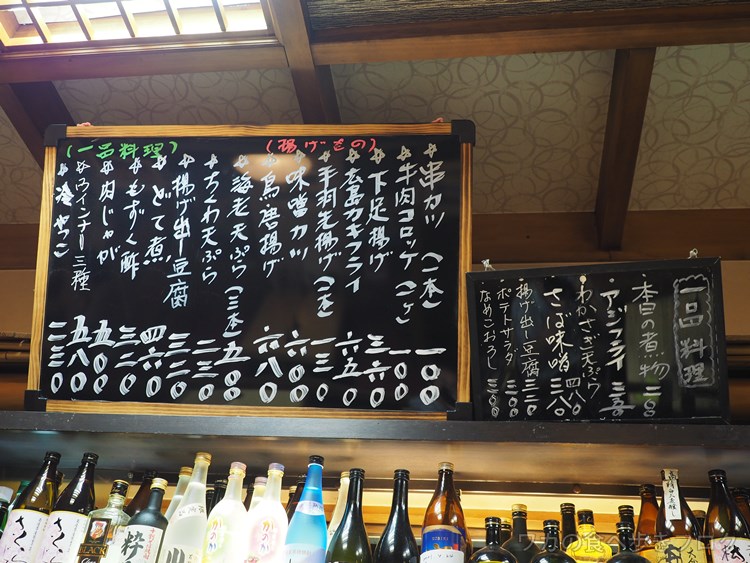 (揚げもの)
☆串カツ(一本) 一〇〇
☆牛肉コロッケ(一ヶ) 一〇〇
☆下足揚げ 三六〇
☆広島カキフライ 六五〇
☆手羽先揚げ(一本) 一三〇
☆味噌カツ 六〇〇
☆鳥唐揚げ 六八〇
☆海老天ぷら(三本)
☆ちくわ天ぷら 二二〇
(一品料理)
☆揚げ出し豆腐 三二〇
☆どて煮 四六〇
☆もずく酢 三二〇
☆肉じゃが 五〇〇
☆ウインナー三種 五八〇
☆冷やっこ 二三〇
一品料理
・本日の煮物
・アジフライ
・わかさぎ天ぷら 四八〇
・さば味噌 三八〇
・揚げ出し豆腐 三二〇
・ポテトサラダ 三〇〇
・なめこおろし 二〇〇
さくら
さくら
BLACK
粋
かのか
かのか
ワカの食べ歩きブログ